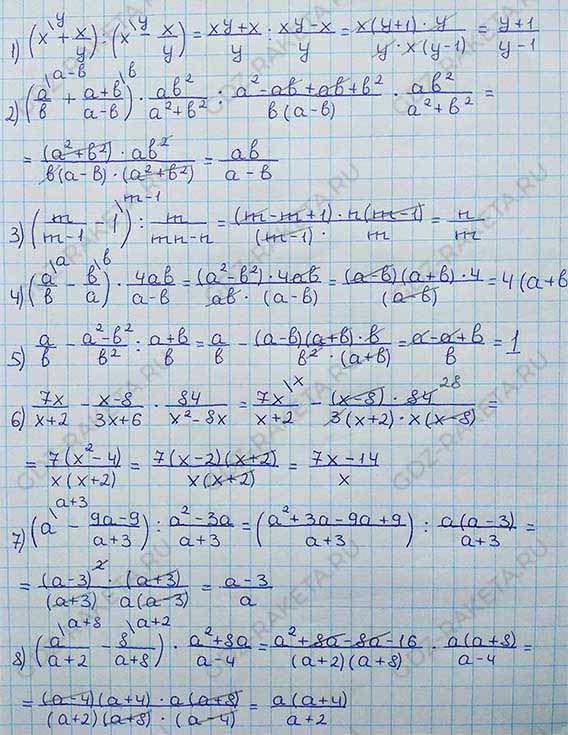 1) (x\y + x/y) : (x\y − x/y) = (xy+x)/y : (xy−x)/y = (x(y+1) · y)/(y · x(y−1)) = (y+1)/(y−1)
2) (a/b\a−b + (a+b)/(a−b)\b) · ab²/(a²+b²) : (a²−ab+ab+b²)/(b(a−b)) · ab²/(a²+b²) =
= ((a²+b²) · ab²)/(b(a−b) · (a²+b²)) = ab/(a−b)
3) (m/(m−1) − 1\m−1) : m/(mn−n) = ((m−m+1) · n(m−1))/((m−1) · m) = n/m
4) (a/b\a − b/a\b) · 4ab/(a−b) = ((a²−b²) · 4ab)/(ab · (a−b)) = ((a−b)(a+b) · 4)/(a−b) = 4(a+b
5) a/b − (a²−b²)/b² : (a+b)/b = a/b − ((a−b)(a+b) · b)/(b² · (a+b)) = (a−a+b)/b = 1
6) 7x/(x+2) − (x−8)/(3x+6) · 84/(x²−8x) = 7x/(x+2)\x − ((x−8) · 84 28)/(3(x+2) · x(x−8)) =
= 7(x²−4)/(x(x+2)) = 7(x−2)(x+2)/(x(x+2)) = (7x−14)/x
7) (a\a+3 − (9a−9)/(a+3)) : (a²−3a)/(a+3) = ((a²+3a−9a+9)/(a+3)) : a(a−3)/(a+3) =
= ((a−3)² · (a+3))/((a+3) · a(a−3)) = (a−3)/a
8) (a/(a+2)\a+8 − 8/(a+8)\a+2) · (a²+8a)/(a−4) = (a²+8a−8a−16)/((a+2)(a+8)) · a(a+8)/(a−4) =
= ((a−4)(a+4) · a(a+8))/((a+2)(a+8) · (a−4)) = a(a+4)/(a+2)
GDZ-RAKETA.RU